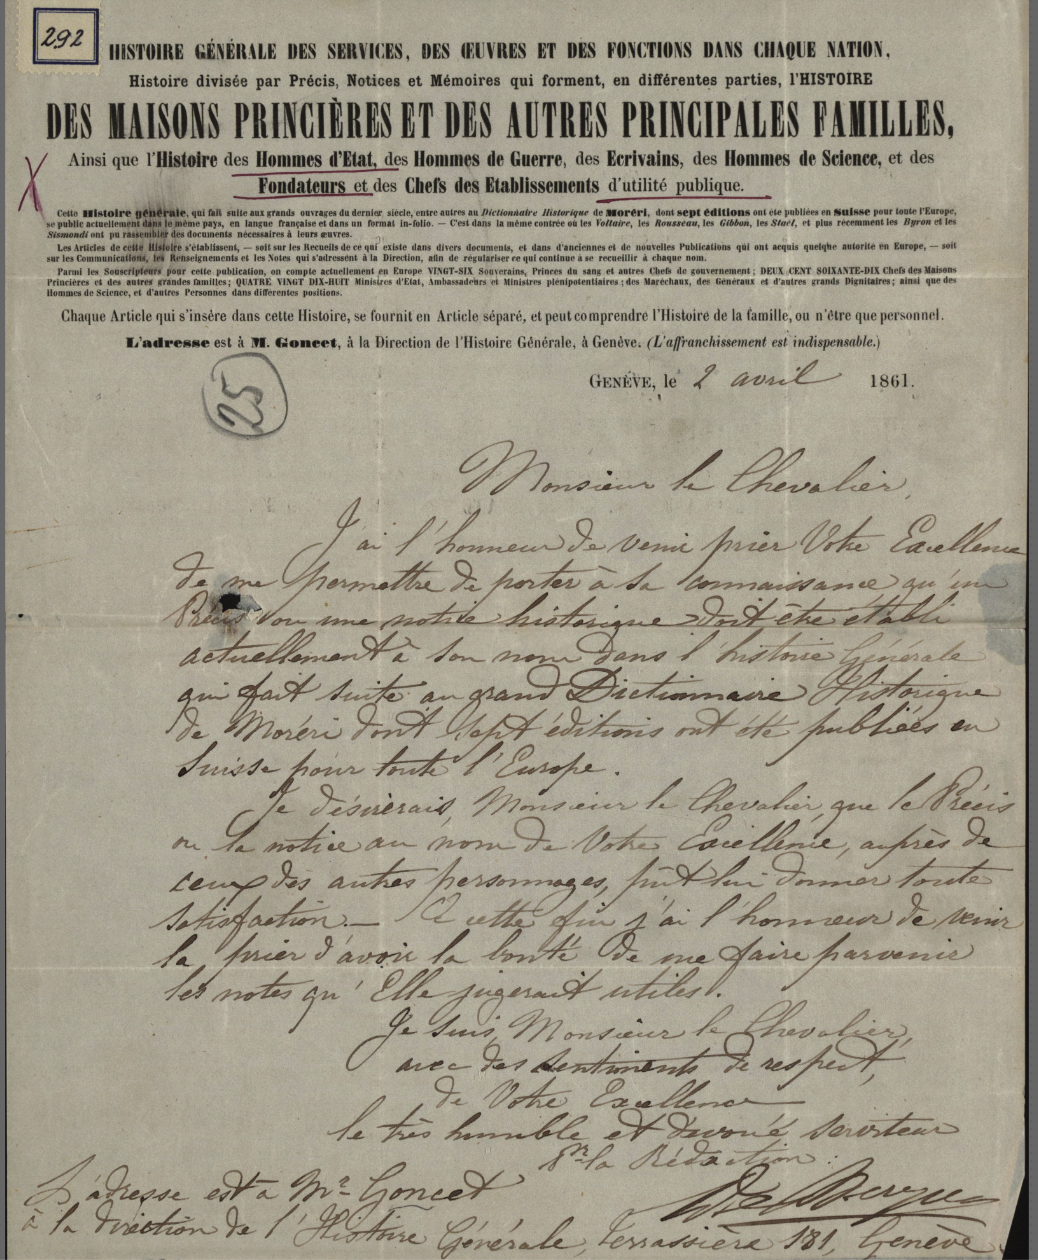 292
HISTOIRE GÉNÉRALE DES SERVICES, DES ŒUVRES ET DES FONCTIONS DANS CHAQUE NATION,
Histoire divisée par Précis, Notices et Mémoires qui forment, en différentes parties, l'HISTOIRE
DES MAISONS PRINCIÈRES ET DES AUTRES PRINCIPALES FAMILLES,
Ainsi que l'Histoire des Hommes d'Etat, des Hommes de Guerre, des Ecrivains, des Hommes de Science, et des
Fondateurs et des Chefs des Etablissements d'utilité publique.
Cette Histoire générale, qui fait suite aux grands ouvrages du dernier siècle, entre autres au Dictionnaire Historique de Moréri, dont sept éditions ont été publiées en Suisse pour toute l'Europe,
se publie actuellement dans le même pays, en langue française et dans un format in-folio. — C'est dans la même contrée où les Voltaire, les Rousseau, les Gibbon, les Staël, et plus récemment les Byron et les
Sismondi ont pu rassembler des documents nécessaires à leurs œuvres.
Les Articles de cette Histoire s'établissent, — soit sur les Recueils de ce qui existe dans divers documents, et dans d'anciennes et de nouvelles Publications qui ont acquis quelque autorité en Europe, — soit
sur les Communications, les Renseignements et les Notes qui s'adressent à la Direction, afin de régulariser ce qui continue à se recueillir à chaque nom.
Parmi les Souscripteurs pour cette publication, on compte actuellement en Europe VINGT-SIX Souverains, Princes du sang et autres Chefs de gouvernement; DEUX CENT SOIXANTE-DIX Chefs des Maisons
Princières et des autres grandes familles; QUATRE VINGT DIX-HUIT Ministres d'Etat, Ambassadeurs et Ministres plénipotentiaires; des Maréchaux, des Généraux et d'autres grands Dignitaires; ainsi que des
Hommes de Science, et d'autres Personnes dans différentes positions.
Chaque Article qui s'insère dans cette Histoire, se fournit en Article séparé, et peut comprendre l'Histoire de la famille, ou n'être que personnel.
L'adresse est à M. Goncet, à la Direction de l'Histoire Générale, à Genève. (L'affranchissement est indispensable.)
GENÈVE, le 2 avril 1861.
25
Monsieur le Chevalier,
J'ai l'honneur de venir prier Votre Excellence
de me permettre de porter à sa connaissance qu'un
Précis ou une notice historique doit être établi
actuellement à son nom dans l'histoire Générale
qui fait suite au grand Dictionnaire Historique
de Moréri dont sept éditions ont été publiées en
Suisse pour toute l'Europe.
Je désirerais, Monsieur le Chevalier, que le Précis
ou la notice au nom de Votre Excellence, auprès de
ceux des autres personnages, pût lui donner toute
satisfaction. — A cette fin j'ai l'honneur de venir
la prier d'avoir la bonté de me faire parvenir
les notes qu'Elle jugerait utiles.
Je suis, Monsieur le Chevalier,
avec des sentiments de respect,
de Votre Excellence
le très humble et dévoué serviteur
Pr la Rédaction:
L'adresse est à Mr Goncet
à la direction de l'Histoire Générale, Terrassière 181, Genève.